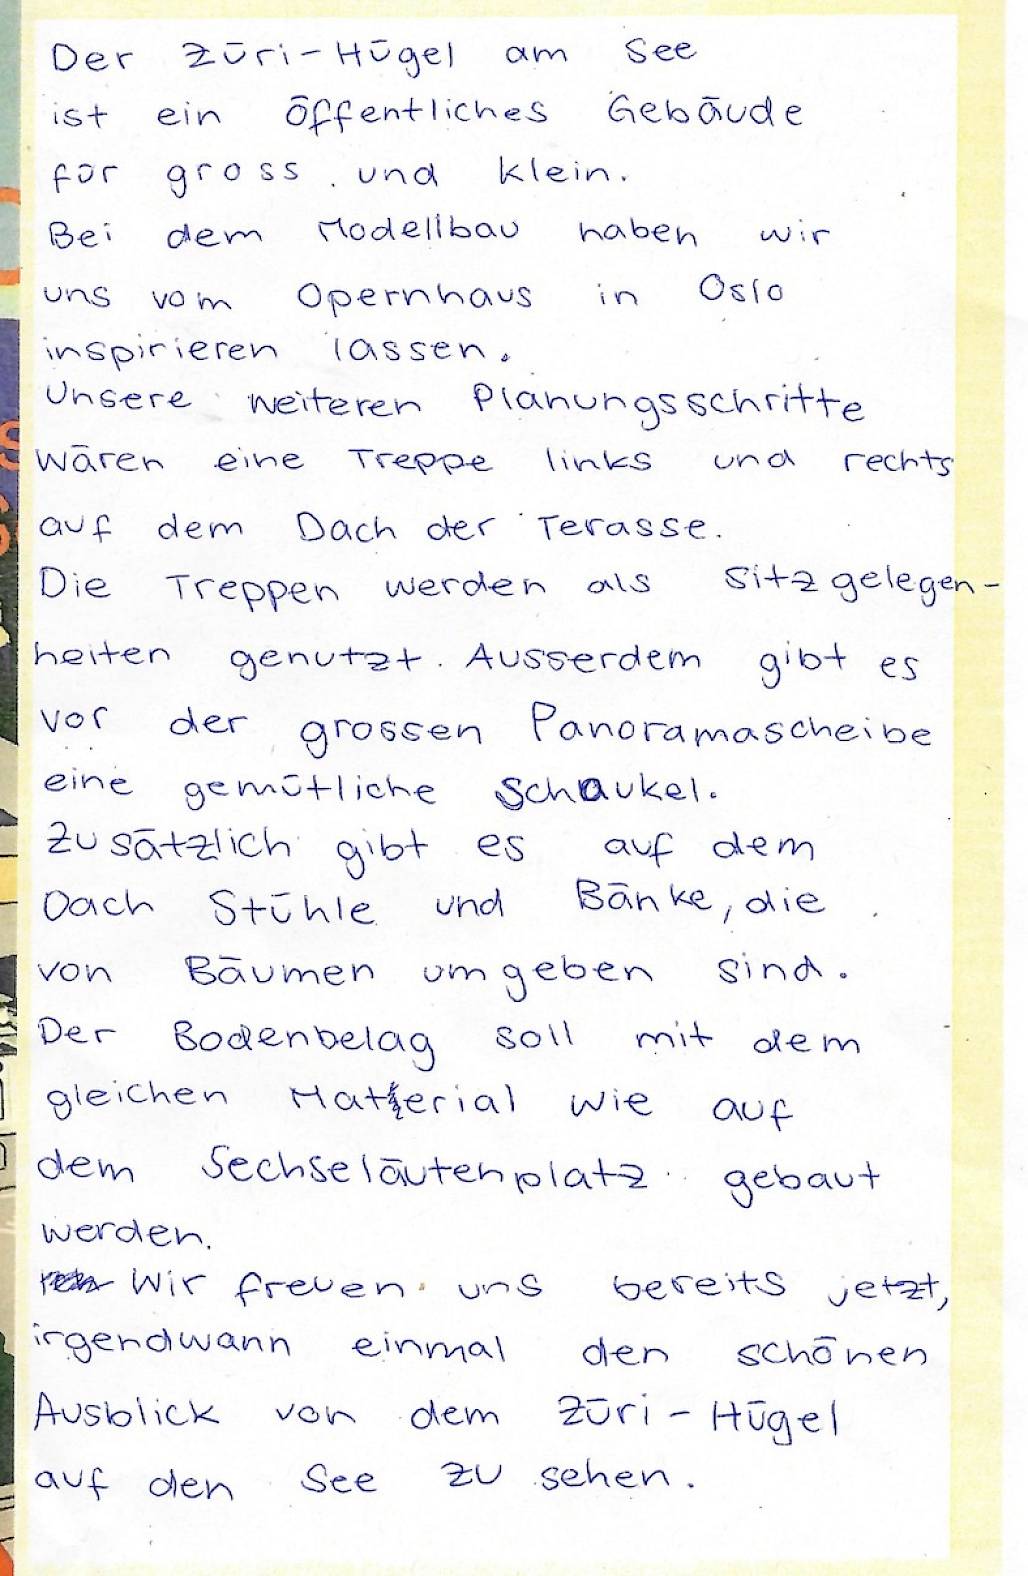 Der Züri-Hügel am See
ist ein öffentliches Gebäude
für gross und klein.
Bei dem Modellbau haben wir
uns vom Opernhaus in Oslo
inspirieren lassen.
Unsere weiteren Planungsschritte
wären eine Treppe links und rechts
auf dem Dach der Terasse.
Die Treppen werden als Sitzgelegen-
heiten genutzt. Ausserdem gibt es
vor der grossen Panoramascheibe
eine gemütliche Schaukel.
Zusätzlich gibt es auf dem
Dach Stühle und Bänke, die
von Bäumen umgeben sind.
Der Bodenbelag soll mit dem
gleichen Material wie auf
dem Sechseläutenplatz gebaut
werden.
Wir freuen uns bereits jetzt,
irgendwann einmal den schönen
Ausblick von dem Züri-Hügel
auf den See zu sehen.